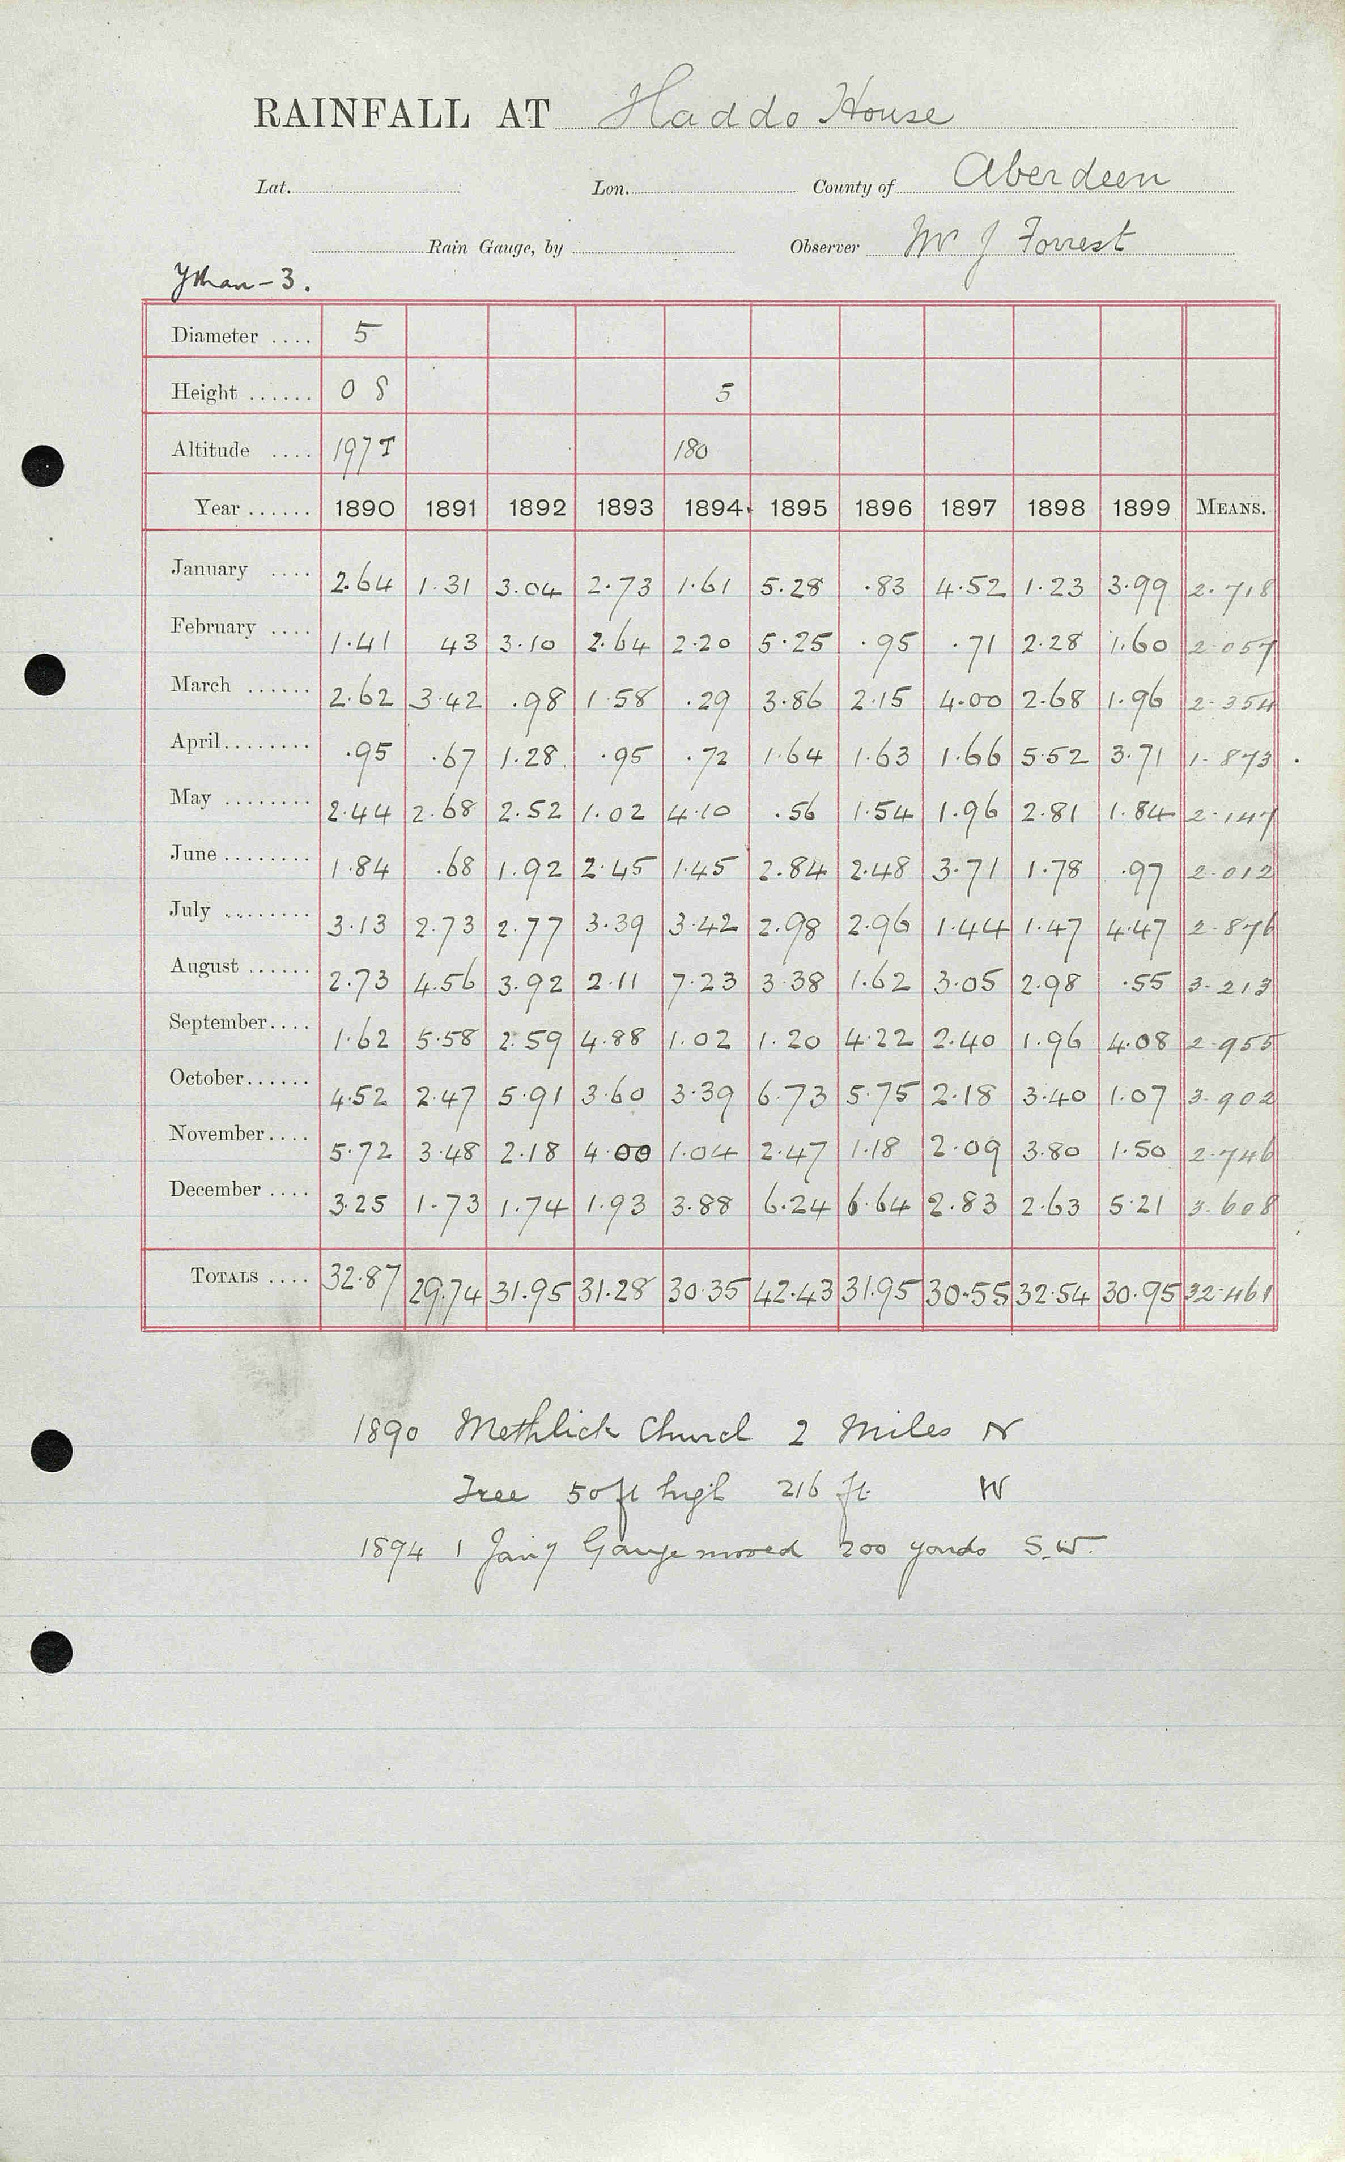 RAINFALL AT Haddo House
Lat. Lon. County of Aberdeen
Rain Gauge, by Observer Mr J Forrest
Ythan - 3.
Diameter .... 5
Height ...... 0 8 5
Altitude .... 197 T 180
Year ...... 1890 1891 1892 1893 1894 1895 1896 1897 1898 1899 MEANS.
January .... 2.64 1.31 3.04 2.73 1.61 5.28 .83 4.52 1.23 3.99 2.718
February .... 1.41 43 3.10 2.64 2.20 5.25 .95 .71 2.28 1.60 2.057
March ...... 2.62 3.42 .98 1.58 .29 3.86 2.15 4.00 2.68 1.96 2.354
April........ .95 .67 1.28 .95 .72 1.64 1.63 1.66 5.52 3.71 1.873
May ........ 2.44 2.68 2.52 1.02 4.10 .56 1.54 1.96 2.81 1.84 2.147
June ........ 1.84 .68 1.92 2.45 1.45 2.84 2.48 3.71 1.78 .97 2.012
July ........ 3.13 2.73 2.77 3.39 3.42 2.98 2.96 1.44 1.47 4.47 2.876
August ...... 2.73 4.56 3.92 2.11 7.23 3.38 1.62 3.05 2.98 .55 3.213
September.... 1.62 5.58 2.59 4.88 1.02 1.20 4.22 2.40 1.96 4.08 2.955
October...... 4.52 2.47 5.91 3.60 3.39 6.73 5.75 2.18 3.40 1.07 3.902
November.... 5.72 3.48 2.18 4.00 1.04 2.47 1.18 2.09 3.80 1.50 2.746
December .... 3.25 1.73 1.74 1.93 3.88 6.24 6.64 2.83 2.63 5.21 3.608
TOTALS .... 32.87 29.74 31.95 31.28 30.35 42.43 31.95 30.55 32.54 30.95 32.461
1890 Methlick Church 2 Miles N
Tree 50ft high 216 ft W
1894 1 Jany Gauge moved 200 yards S.W.